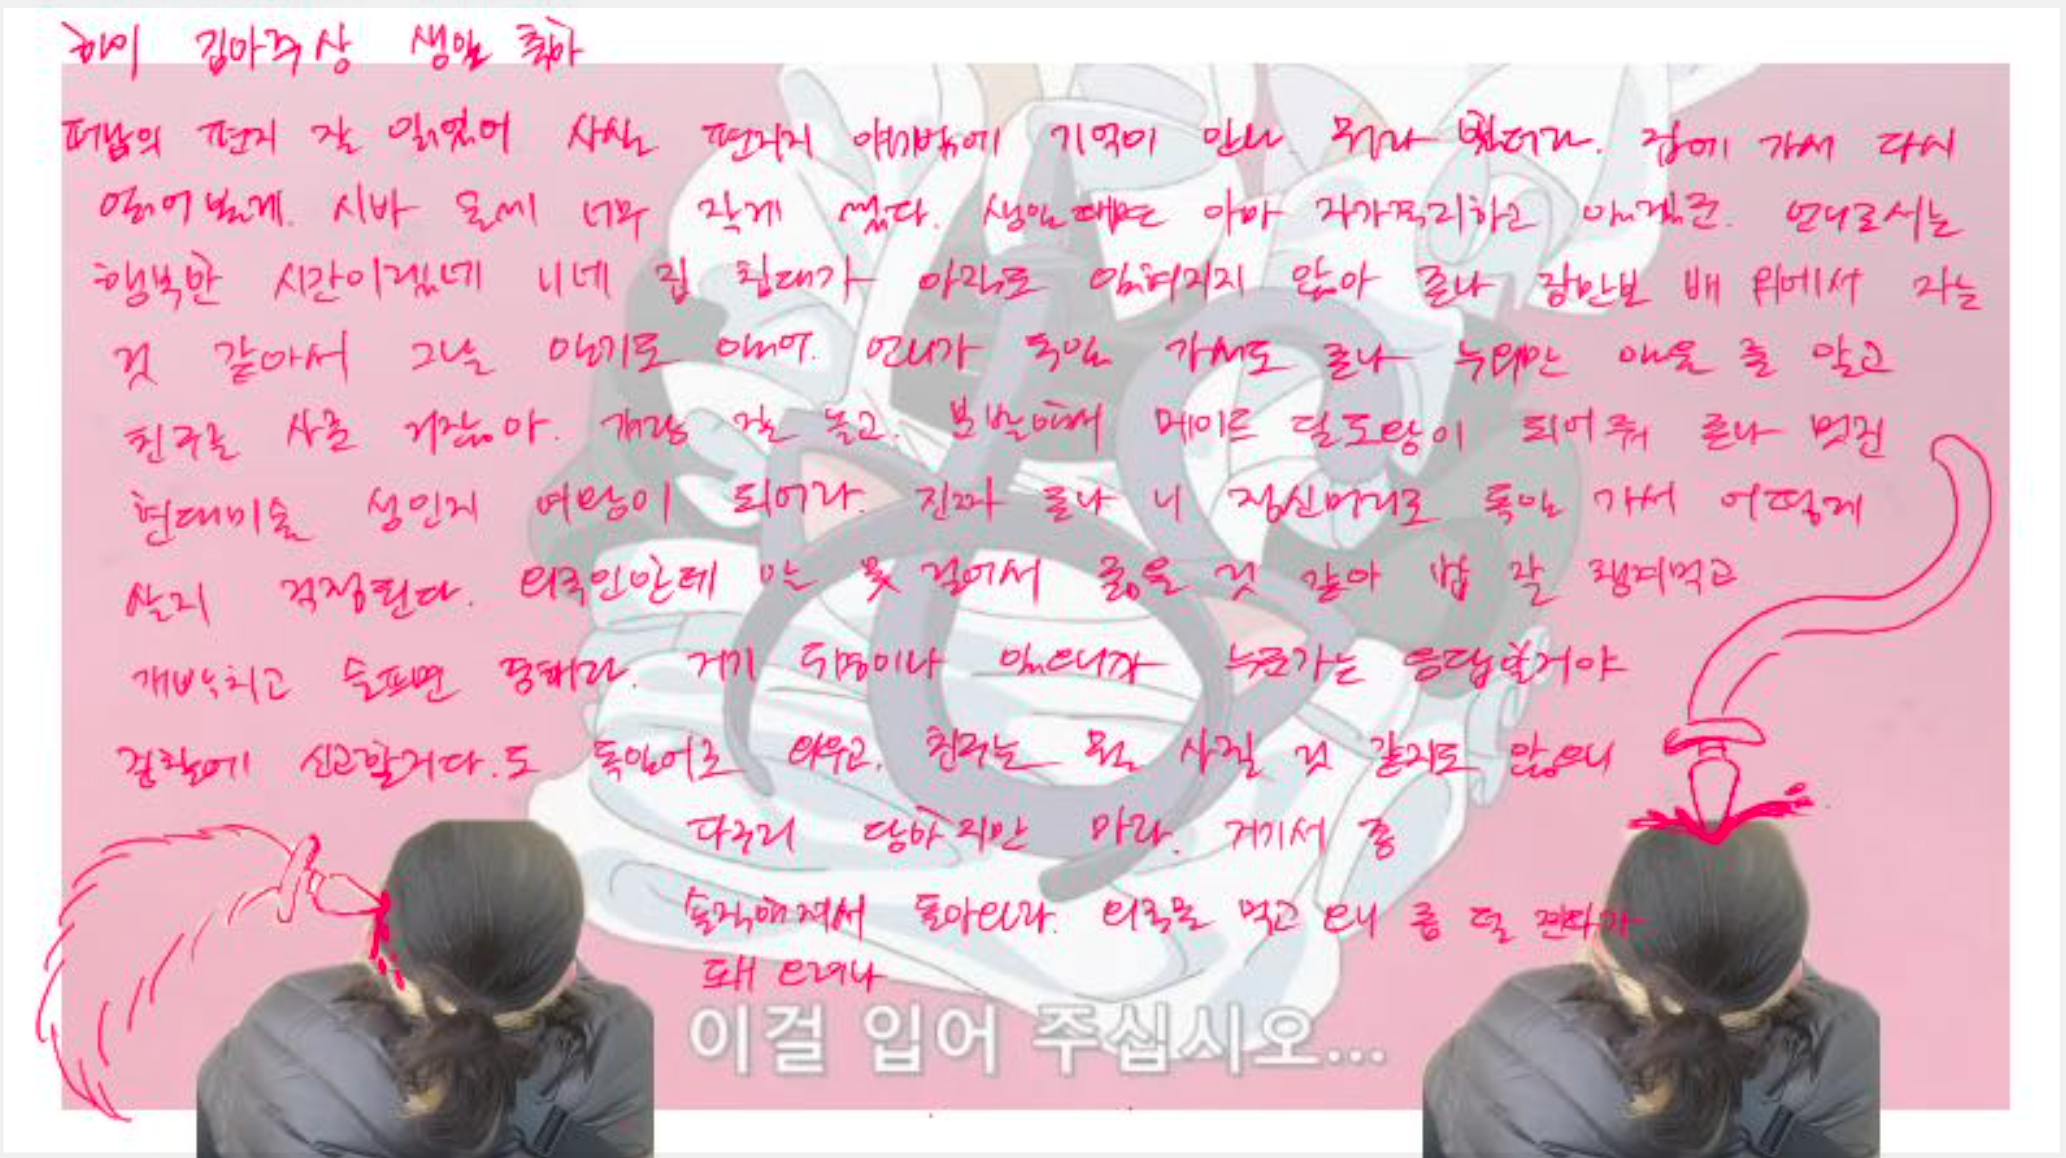 하이 김아주상 생일 축하
편지 잘 읽었어 사실 편지지 얘기밖에 기억이 안나 뭐라 했더라. 집에 가서 다시
읽어볼게. 시바 글씨 너무 작게 썼다. 생일때면 아마 자가격리하고 있겠군. 언니로서는
행복한 시간이겠네 니네 집 침대가 아직도 잊혀지지 않아 존나 잠만보 배 위에서 자는
것 같아서 그날 안기도 했어. 언니가 독일 가서도 존나 누워만 있을 줄 알고
친구를 사준 거잖아. 개랑 잘 놀고. 분발해서 메이드 딜도왕이 되어줘 존나 멋진
현대미술 성인지 여왕이 되어라. 진짜 존나 니 정신머리로 독일 가서 어떻게
살지 걱정된다. 외국인한테 말 못 걸어서 굶을 것 같아 밥 잘 챙겨먹고
개빡치고 슬프면 통해라. 거기 두명이나 있으니까 누군가는 응답할거야
경찰에 신고할거다.도 독일어로 외우고. 친구는 못 사귈 것 같지도 않으니
다구리 당하지만 마라. 거기서 좀
솔직해져서 돌아와라. 외국물 먹고 오니 좀 덜 찐따가
돼 오려나
이걸 입어 주십시오...